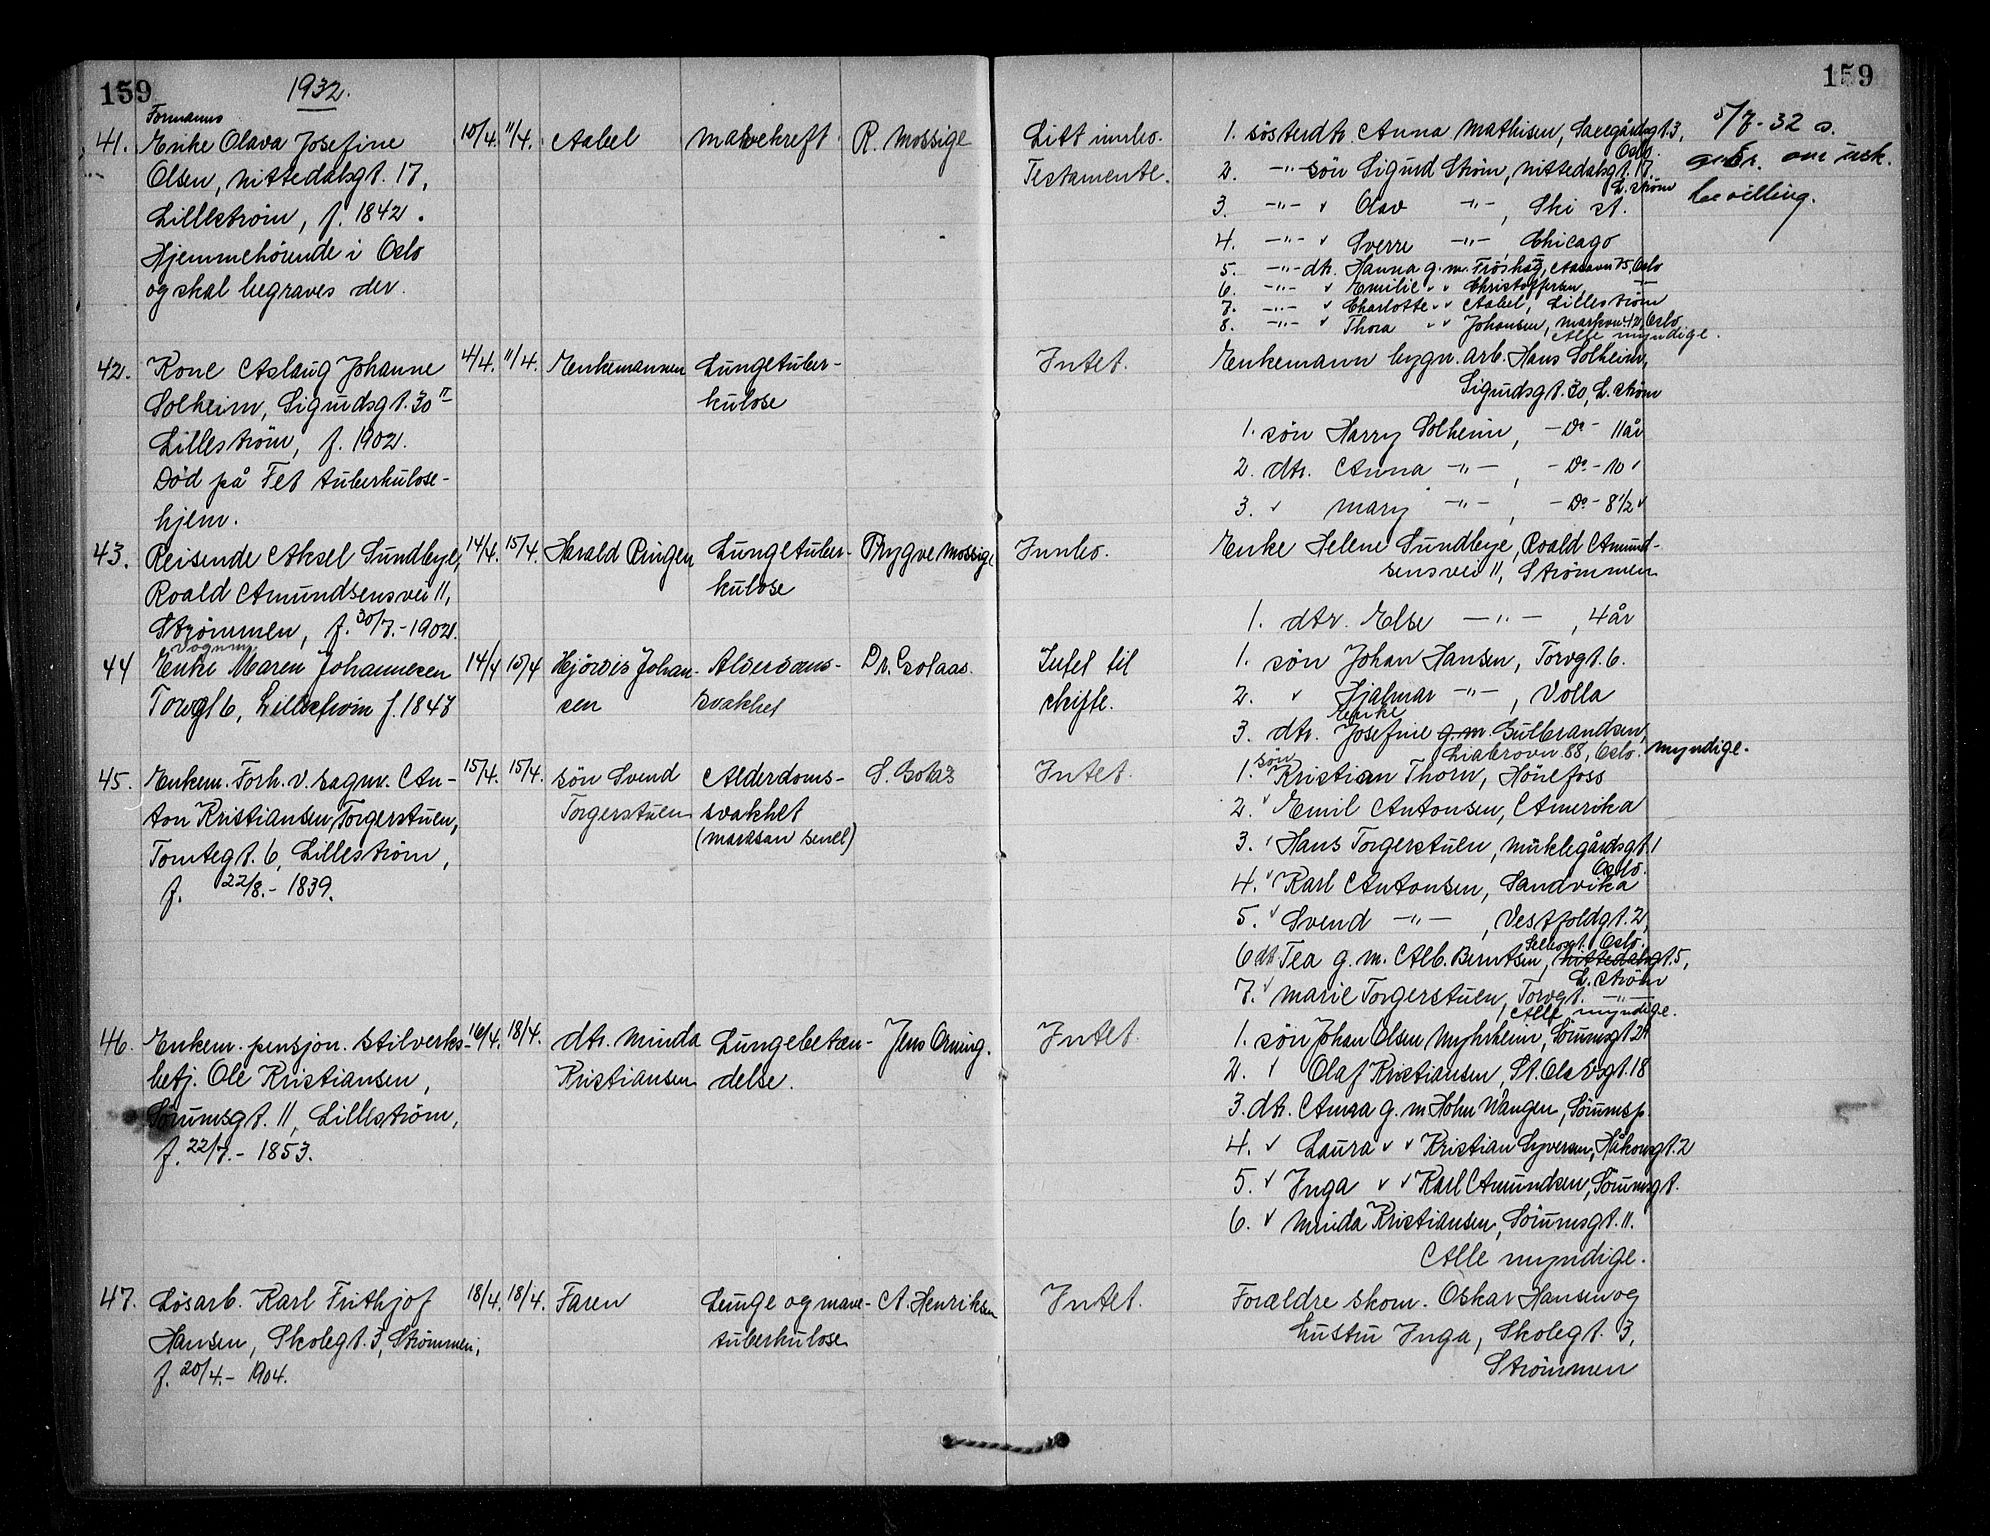 159
1932.
159
Formanns
41. Enke Olava Josefine
Olsen, Nittedalsgt. 17,
Lillestrøm, f. 1842.
Hjemmehørende i Oslo
og skal begraves der.
10/4. 11/4. Aabel Mavekreft R. Mossige
Litt innbo.
Testamente.
1. søsterdtr. Anna Mathisen, Saxegårdsgt. 3,
Oslo.
2. -"- søn Sigurd Strøm, Nittedalsgt. 17
L.strøm
3. -"- " Olav -"-, Ski st.
4. -"- " Sverre -"-, Chicago
5. -"- dtr. Hanna g. m. Frøshaug, 75, Oslo
6. -"- " Emilie " " Christoffersen, -"-
7. -"- " Charlotte " " Aabel, Lillestrøm
8. -"- " Thora " " Johansen, Markvn. 42, Oslo
Alle myndige.
5/7-32 s.
bevilling.
42. Kone Aslaug Johanne
Solheim, Sigurdsgt. 30 II
Lillestrøm, f. 1902.
Død på Fet tuberkulose-
hjem.
4/4. 11/4. Enkemannen Lungetuber-
kulose
Intet.
Enkemann bygn. arb. Hans Solheim,
Sigurdsgt. 30, L.strøm
1. søn Harry Solheim, - Do - 11 år
2. dtr. Anna -"-, - Do - 10 "
3. " Mary -"-, - Do - 8 1/2 "
43. Reisende Aksel Sundbye,
Roald Amundsensvei 11,
Strømmen, f. 30/7.-1902.
14/4. 15/4. Harald Ringen Lungetuber-
kulose
Trygve Mossige
Innbo.
Enke Helene Sundbye, Roald Amund-
sensvei 11, Strømmen
1. dtr. Else -"-, 4 år
44 Enke Maren Johannesen
Torvgt 6, Lillestrøm f. 1843
14/4 15/4 Hjørdis Johan-
sen
Alderdoms-
svakhet
Intet til
skifte.
1. søn Johan Hansen, Torvgt. 6.
2. " Hjalmar -"-, Volla
Enke
3. dtr. Josefine g. m. Gulbrandsen,
Liabrovn 88, Oslo. Myndige.
45. Enkem. Forh. v. sagmr. An-
ton Kristiansen Torgerstuen,
Tomtegt. 6, Lillestrøm,
f. 22/8.- 1839.
15/4. 15/4. søn Svend
Torgerstuen
Alderdoms-
svakhet
(marasm senil)
Intet.
søn
1. Kristian Thorn, Hønefoss
2. " Emil Antonsen, Amerika
3. " Hans Torgerstuen, Munklegårdsgt. 1
Oslo.
4. " Karl Antonsen, Sandvika
5. " Svend -"-, Vestfoldgt. 2,
Oslo.
6 dtr Tea g. m. Alb. Berntsen, Nittedalsgt. 5,
L.strøm
7. " Marie Torgerstuen, Torvgt. -"-
Alle myndige.
46. Enkem. pensjon. stilverks-
betj. Ole Kristiansen,
Sørumsgt. 11, Lillestrøm,
f. 22/7.- 1853.
16/4. 18/4. dtr. Minda
Kristiansen
Lungebetæn-
delse.
Jens Orning.
Intet.
1. søn Johan Olsen Myhrheim, Sørumsgt 24
2. " Olaf Kristiansen, St. Olavsgt. 18
3. dtr. Anna g. m Holm Wangen, Sørumsgt.
4. " Laura " " Kristian Syversen, Håkonsgt. 2
5. " Inga " " Karl Amundsen, Sørumsgt.
6. " Minda Kristiansen, Sørumsgt. 11.
Alle myndige.
47. Løsarb. Karl Frithjof
Hansen, Skolegt. 3, Strømmen,
f. 20/4.- 1904.
18/4. 18/4. Faren
Lunge og mave-
tuberkulose
A. Henriksen
Intet.
Forældre skom. Oskar Hansen og
hustru Inga, Skolegt. 3,
Strømmen